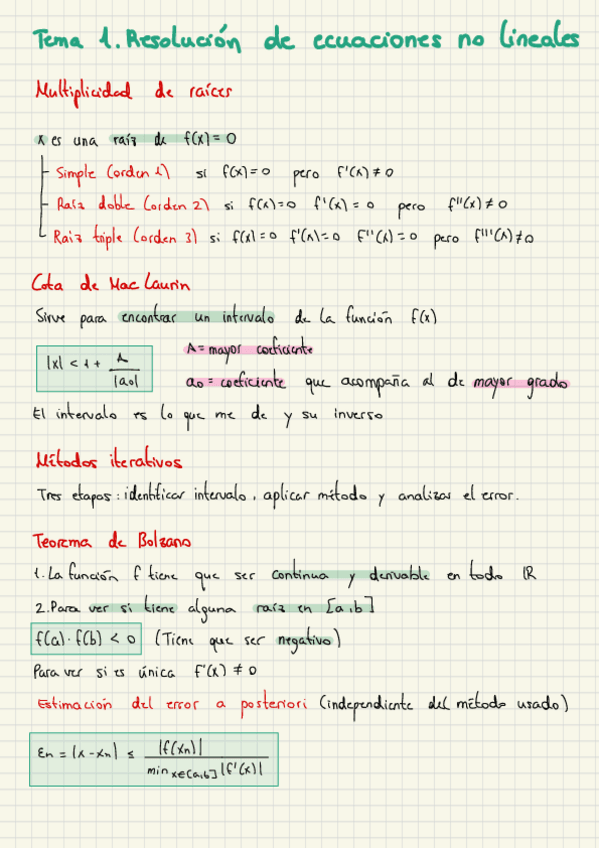 Tema 1. Resolución de ecuaciones no lineales
Multiplicidad de raíces
x es una raíz de f(x) = 0
Simple (orden 1) si f(x) = 0 pero f'(x) ≠ 0
Raíz doble (orden 2) si f(x) = 0 f'(x) = 0 pero f''(x) ≠ 0
Raíz triple (orden 3) si f(x) = 0 f'(x) = 0 f''(x) = 0 pero f'''(x) ≠ 0
Cota de Mac Laurin
Sirve para encontrar un intervalo de la función f(x)
|x| < 1 + A / |a0|
A = mayor coeficiente
a0 = coeficiente que acompaña al de mayor grado
El intervalo es lo que me de y su inverso
Métodos iterativos
Tres etapas: identificar intervalo, aplicar método y analizar el error.
Teorema de Bolzano
1. La función f tiene que ser continua y derivable en todo ℝ
2. Para ver si tiene alguna raíz en [a,b]
f(a) · f(b) < 0 (Tiene que ser negativo)
Para ver si es única f'(x) ≠ 0
Estimación del error a posteriori (independiente del método usado)
En = |x - xn| ≤ |f(xn)| / min x∈[a,b] |f'(x)|